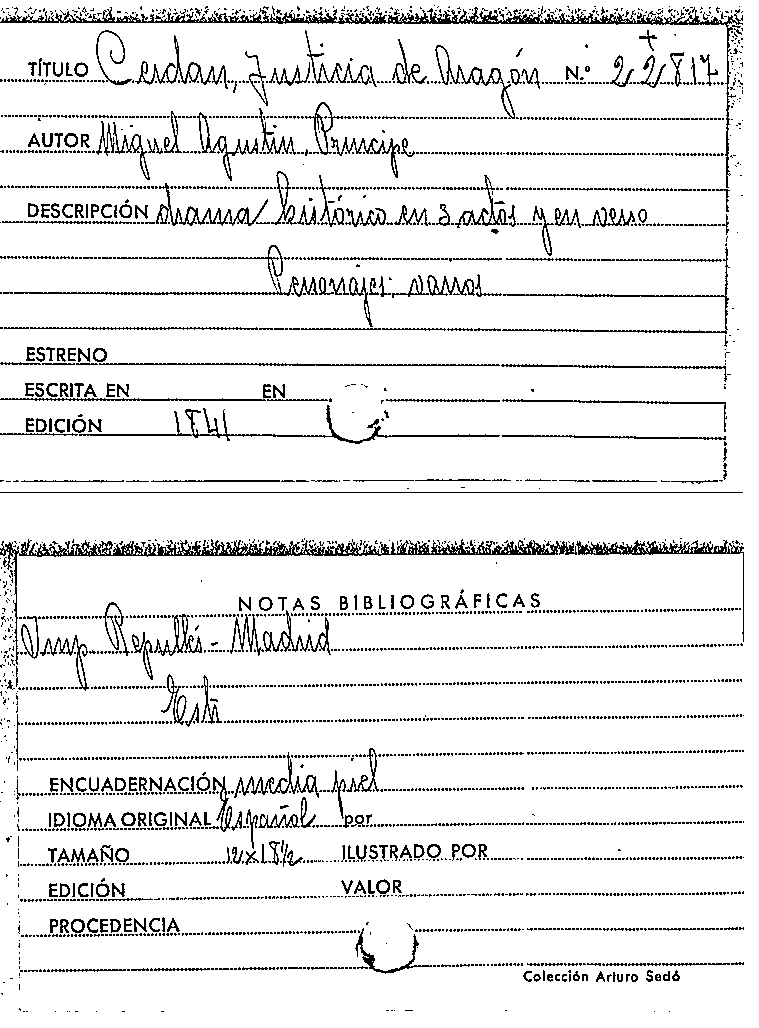 TÍTULO Cerdan, Justicia de Aragón N.º 22817
AUTOR Miguel Agustin, Principe
DESCRIPCIÓN drama histórico en 3 actos y en verso
Personajes: varios
ESTRENO
ESCRITA EN EN
EDICIÓN 1841
NOTAS BIBLIOGRÁFICAS
Imp. Repullés - Madrid
ENCUADERNACIÓN media piel
IDIOMA ORIGINAL Español por
TAMAÑO 12 x 18½ ILUSTRADO POR
EDICIÓN VALOR
PROCEDENCIA
Colección Arturo Sedó